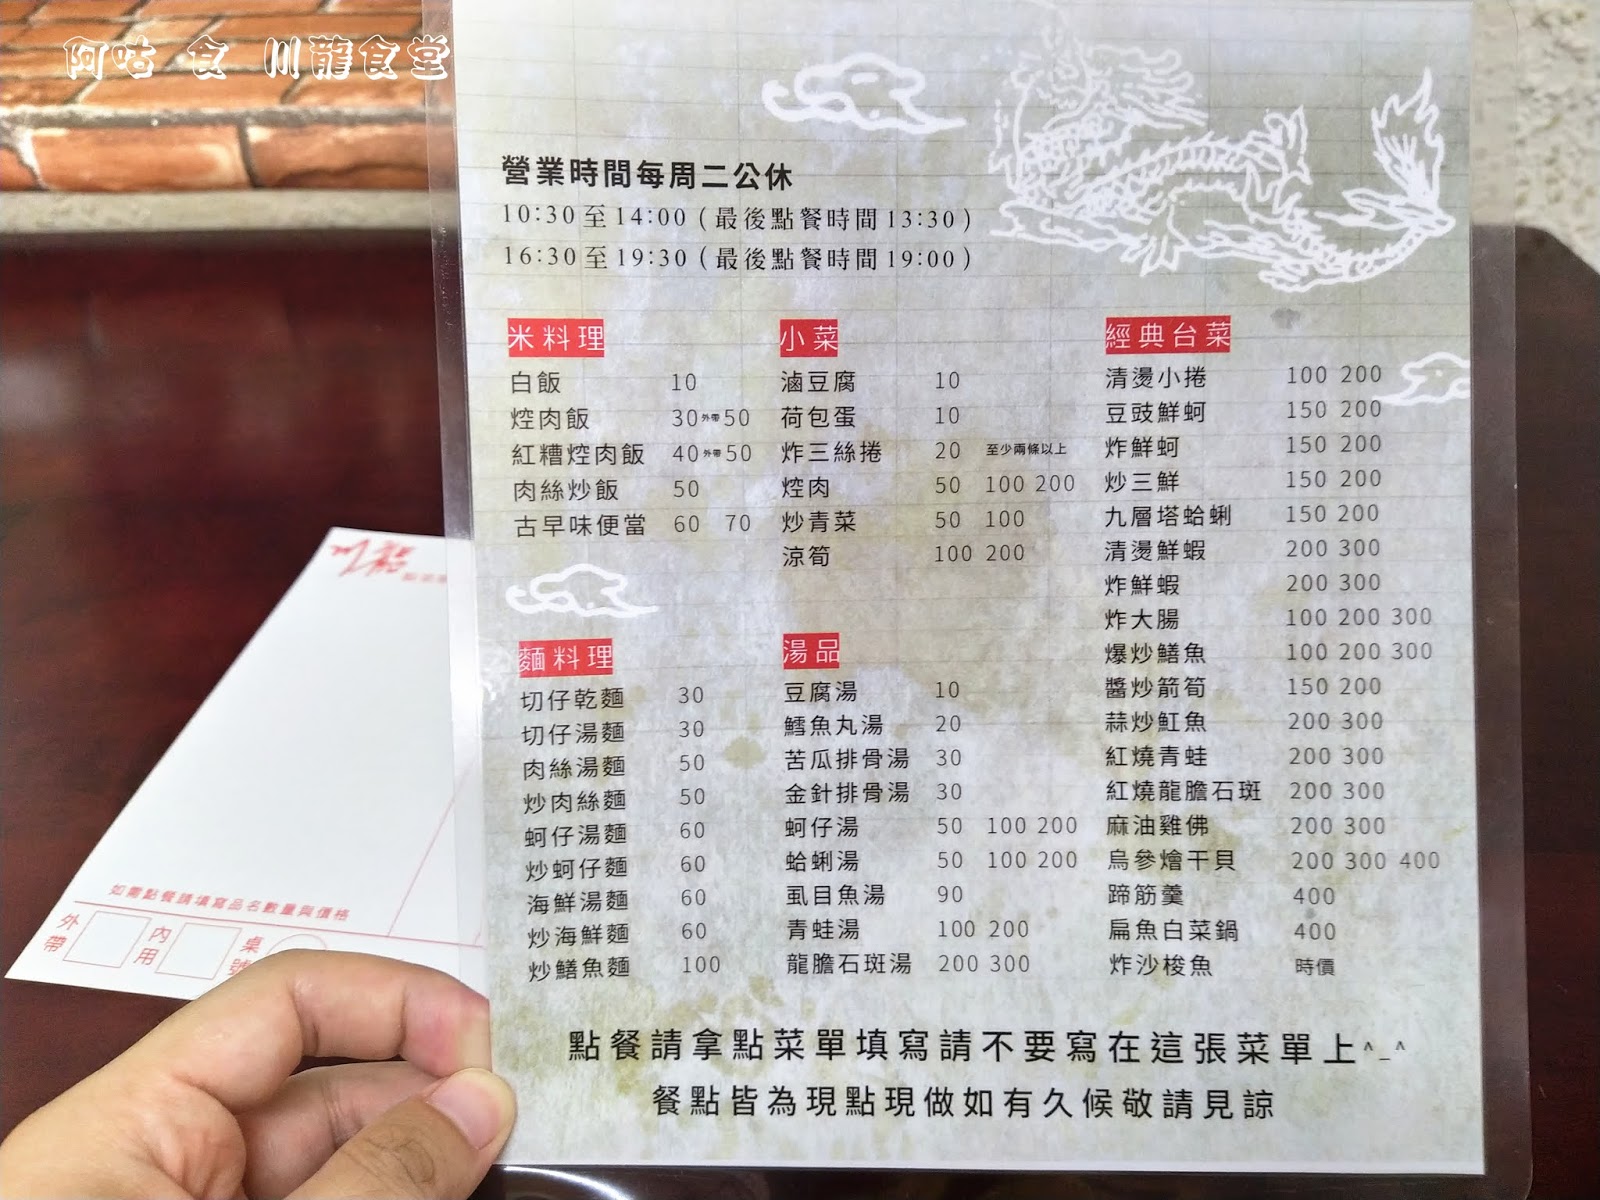 阿咕 食 川龍食堂
營業時間每周二公休
10:30至14:00（最後點餐時間13:30）
16:30至19:30（最後點餐時間19:00）
米料理
白飯 10
焢肉飯 30外帶50
紅糟焢肉飯 40外帶50
肉絲炒飯 50
古早味便當 60 70
小菜
滷豆腐 10
荷包蛋 10
炸三絲捲 20 至少兩條以上
焢肉 50 100 200
炒青菜 50 100
涼筍 100 200
經典台菜
清燙小捲 100 200
豆豉鮮蚵 150 200
炸鮮蚵 150 200
炒三鮮 150 200
九層塔蛤蜊 150 200
清燙鮮蝦 200 300
炸鮮蝦 200 300
炸大腸 100 200 300
爆炒鱔魚 100 200 300
醬炒箭筍 150 200
蒜炒魟魚 200 300
紅燒青蛙 200 300
紅燒龍膽石斑 200 300
麻油雞佛 200 300
烏參燴干貝 200 300 400
蹄筋羹 400
扁魚白菜鍋 400
炸沙梭魚 時價
麵料理
切仔乾麵 30
切仔湯麵 30
肉絲湯麵 50
炒肉絲麵 50
蚵仔湯麵 60
炒蚵仔麵 60
海鮮湯麵 60
炒海鮮麵 60
炒鱔魚麵 100
湯品
豆腐湯 10
鱈魚丸湯 20
苦瓜排骨湯 30
金針排骨湯 30
蚵仔湯 50 100 200
蛤蜊湯 50 100 200
虱目魚湯 90
青蛙湯 100 200
龍膽石斑湯 200 300
點餐請拿點菜單填寫請不要寫在這張菜單上^_^
餐點皆為現點現做如有久候敬請見諒
如需點餐請填寫品名數量與價格
外帶 內用 桌號